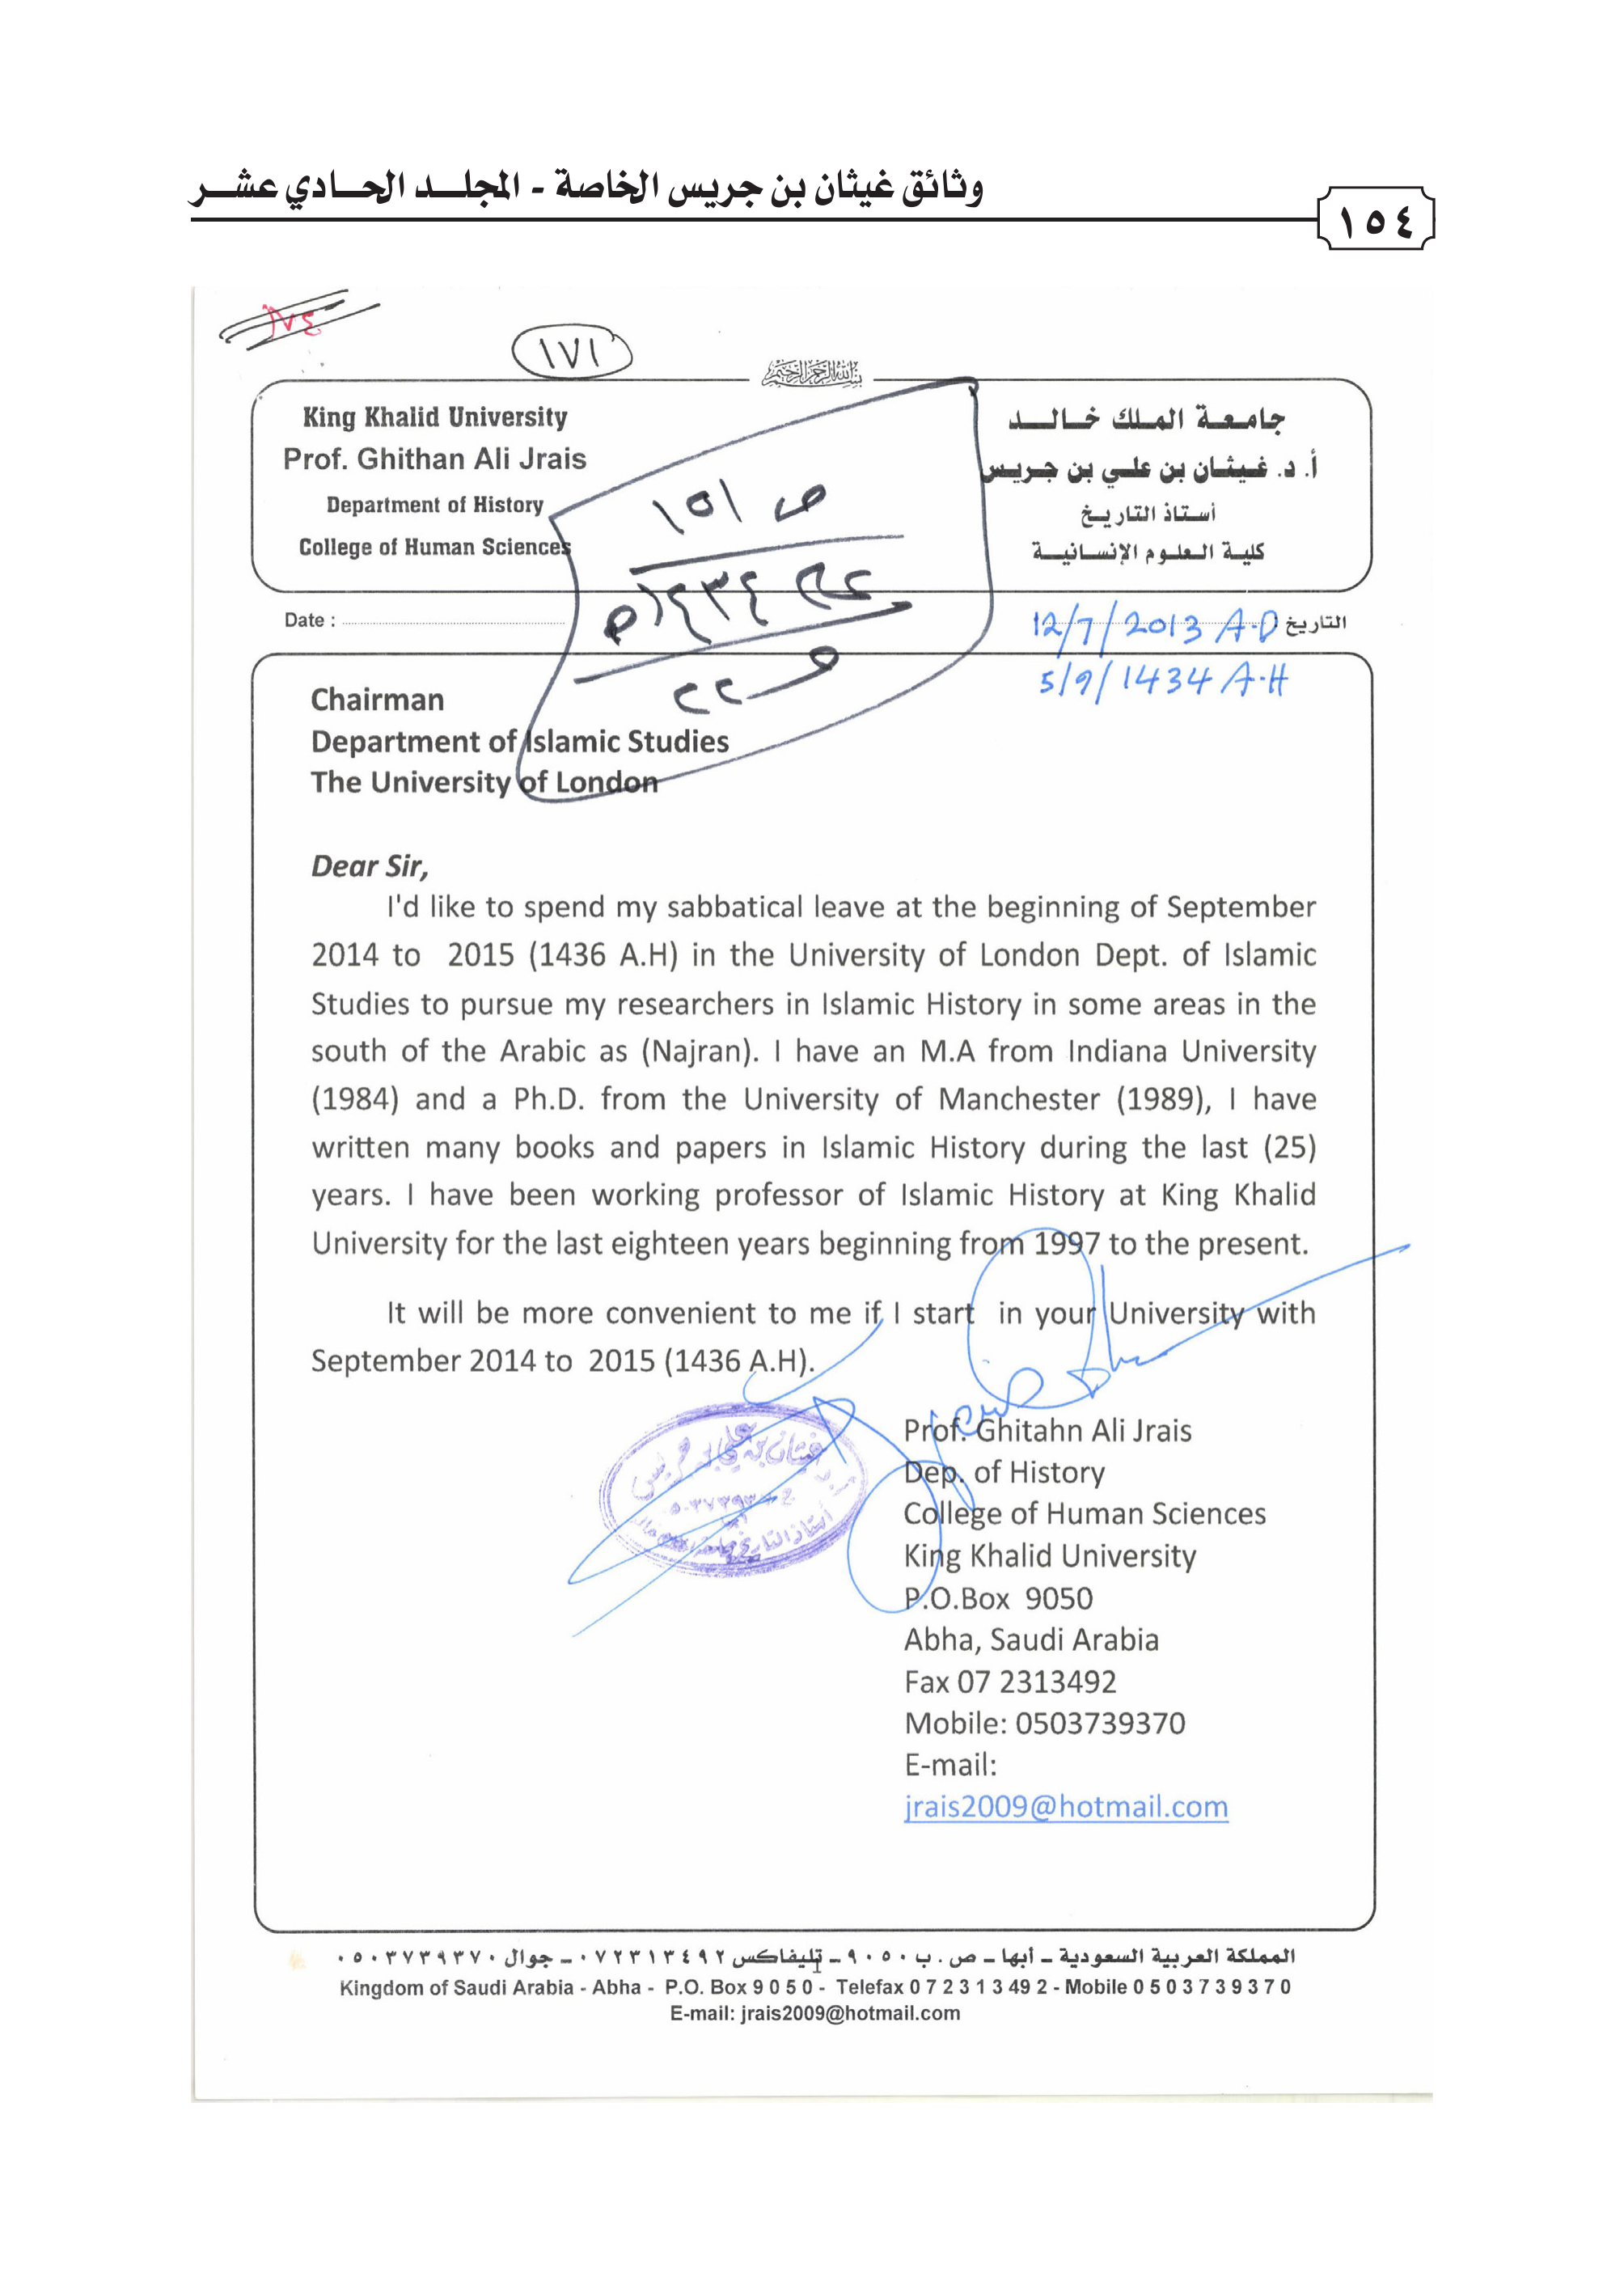 وثائق غيثان بن جريس الخاصة - المجلد الحادي عشر
١٥٤
١٧١
بسم الله الرحمن الرحيم
King Khalid University
Prof. Ghithan Ali Jrais
Department of History
College of Human Sciences
جامعة الملك خالد
أ. د. غيثان بن علي بن جريس
أستاذ التاريخ
كلية العلوم الإنسانية
ص ١٥١
١٤٣٤هـ
Date :
التاريخ : 12/7/2013 A.D
5/9/1434 A.H
Chairman
Department of Islamic Studies
The University of London
Dear Sir,
I'd like to spend my sabbatical leave at the beginning of September
2014 to 2015 (1436 A.H) in the University of London Dept. of Islamic
Studies to pursue my researchers in Islamic History in some areas in the
south of the Arabic as (Najran). I have an M.A from Indiana University
(1984) and a Ph.D. from the University of Manchester (1989), I have
written many books and papers in Islamic History during the last (25)
years. I have been working professor of Islamic History at King Khalid
University for the last eighteen years beginning from 1997 to the present.
It will be more convenient to me if I start in your University with
September 2014 to 2015 (1436 A.H).
Prof. Ghitahn Ali Jrais
Dep. of History
College of Human Sciences
King Khalid University
P.O.Box 9050
Abha, Saudi Arabia
Fax 07 2313492
Mobile: 0503739370
E-mail:
jrais2009@hotmail.com
المملكة العربية السعودية - أبها - ص . ب ٩٠٥٠ - تليفاكس ٠٧٢٣١٣٤٩٢ - جوال ٠٥٠٣٧٣٩٣٧٠
Kingdom of Saudi Arabia - Abha - P.O. Box 9 0 5 0 - Telefax 0 7 2 3 1 3 49 2 - Mobile 0 5 0 3 7 3 9 3 7 0
E-mail: jrais2009@hotmail.com